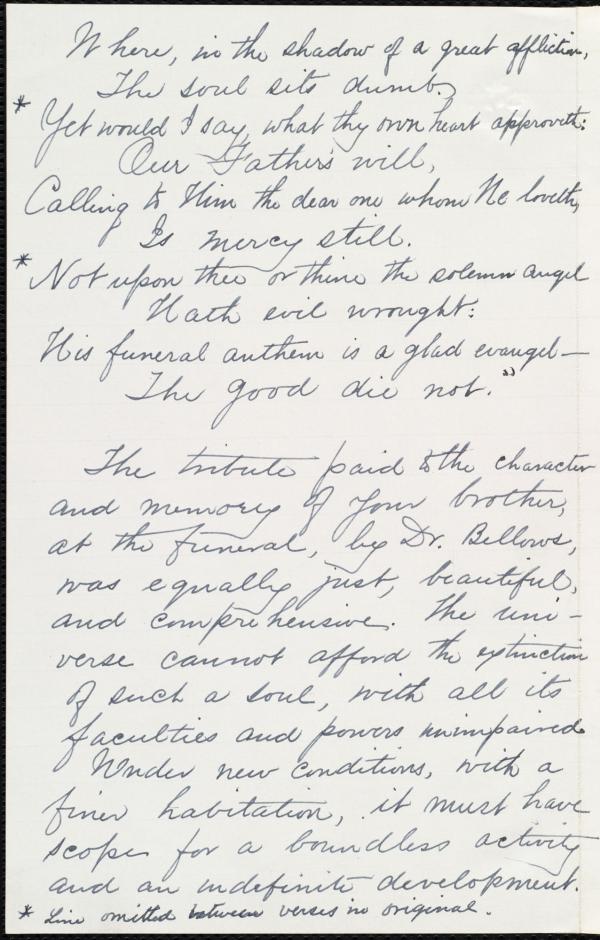 Where, in the shadow of a great affliction,
The soul sits dumb.
* Yet would I say, what thy own heart approveth:
Our Father's will,
Calling to Him the dear one whom He loveth,
Is mercy still.
* Not upon thee or thine the solemn angel
Hath evil wrought:
His funeral anthem is a glad evangel—
The good die not."
The tribute paid to the character
and memory of your brother,
at the funeral, by Dr. Bellows,
was equally just, beautiful,
and comprehensive. The uni-
verse cannot afford the extinction
of such a soul, with all its
faculties and powers unimpaired.
Under new conditions, with a
finer habitation, it must have
scope for a boundless activity
and an indefinite development.
* Line omitted between verses in original.